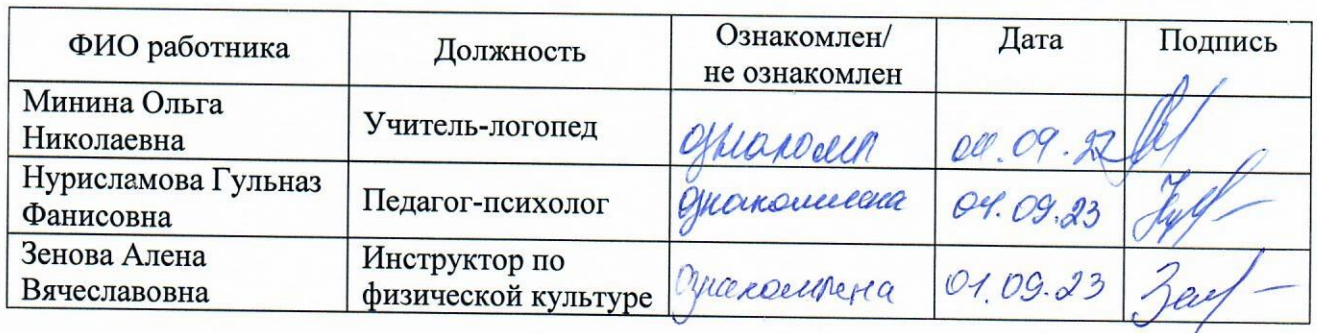 ФИО работника Должность Ознакомлен/ Дата Подпись
не ознакомлен
Минина Ольга
Николаевна
Учитель-логопед ознакомлен
Нурисламова Гульназ
Фанисовна
Педагог-психолог ознакомлена 04.09.23
Зенова Алена
Вячеславовна
Инструктор по
физической культуре ознакомлена 01.09.23